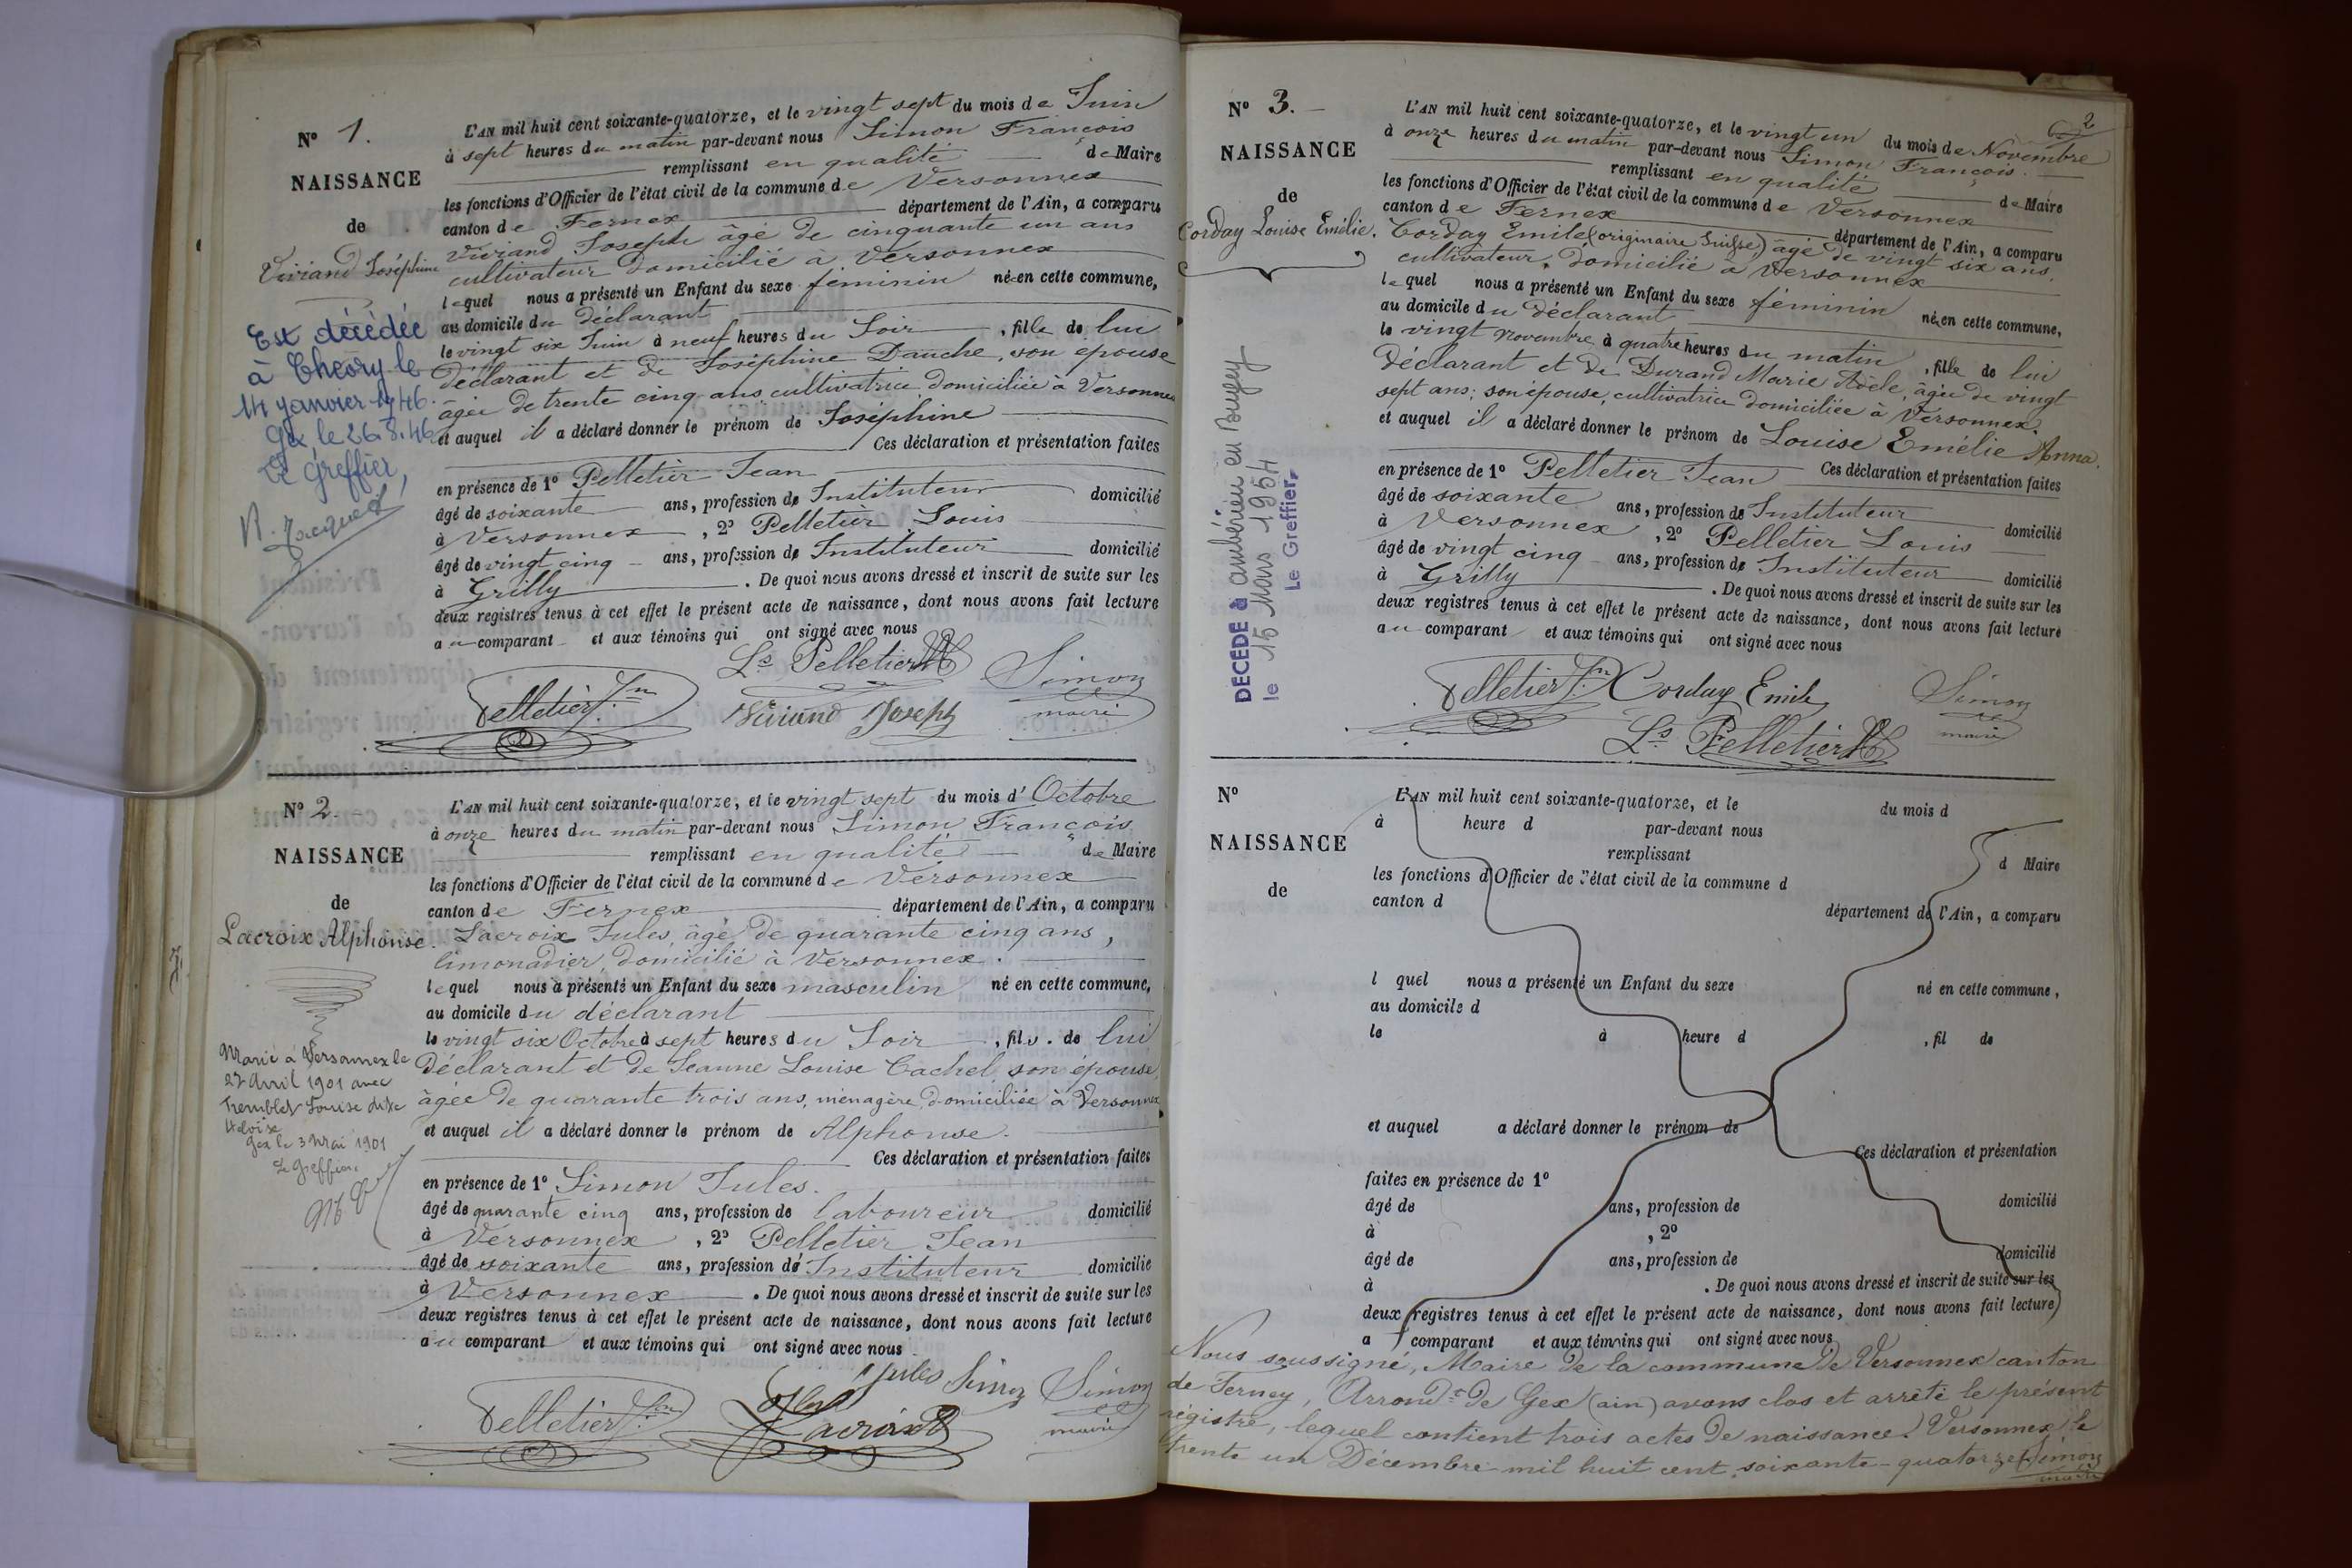 N° 1.
NAISSANCE
de
Viviand Joséphine
Est décédée
à Thoiry le
14 Janvier 1946.
Gex le 26.8.46
Le Greffier,
L'AN mil huit cent soixante-quatorze, et le vingt sept du mois de Juin
à sept heures du matin par-devant nous Simon François
remplissant en qualité de Maire
les fonctions d'Officier de l'état civil de la commune de Versonnex
canton de Fernex département de l'Ain, a comparu
Viviand Joseph âgé de cinquante un ans
cultivateur domicilié à Versonnex
lequel nous a présenté un Enfant du sexe féminin né en cette commune,
au domicile du déclarant
le vingt six Juin à neuf heures du Soir, fille de lui
déclarant et de Joséphine Dauche, son épouse
âgée de trente cinq ans, cultivatrice domiciliée à Versonnex
et auquel il a déclaré donner le prénom de Joséphine
Ces déclaration et présentation faites
en présence de 1° Pelletier Jean
âgé de soixante ans, profession de Instituteur domicilié
à Versonnex, 2° Pelletier Louis
âgé de vingt cinq ans, profession de Instituteur domicilié
à Grilly. De quoi nous avons dressé et inscrit de suite sur les
deux registres tenus à cet effet le présent acte de naissance, dont nous avons fait lecture
au comparant et aux témoins qui ont signé avec nous
Ls Pelletier
Pelletier Jn Viviand Joseph Simon
maire
N° 2.
NAISSANCE
de
Lacroix Alphonse.
Marié à Versonnex le
27 Avril 1901 avec
Tremblet Louise dite
Héloïse
Gex le 3 Mai 1901
Le Greffier
L'AN mil huit cent soixante-quatorze, et le vingt sept du mois d'Octobre
à onze heures du matin par-devant nous Simon François
remplissant en qualité de Maire
les fonctions d'Officier de l'état civil de la commune de Versonnex
canton de Fernex département de l'Ain, a comparu
Lacroix Jules, âgé de quarante cinq ans,
limonadier, domicilié à Versonnex.
lequel nous a présenté un Enfant du sexe masculin né en cette commune,
au domicile du déclarant
le vingt six Octobre à sept heures du Soir, fils de lui
déclarant et de Jeanne Louise Cachel, son épouse,
âgée de quarante trois ans, ménagère, domiciliée à Versonnex
et auquel il a déclaré donner le prénom de Alphonse.
Ces déclaration et présentation faites
en présence de 1° Simon Jules.
âgé de quarante cinq ans, profession de laboureur domicilié
à Versonnex, 2° Pelletier Jean
âgé de soixante ans, profession de Instituteur domicilié
à Versonnex. De quoi nous avons dressé et inscrit de suite sur les
deux registres tenus à cet effet le présent acte de naissance, dont nous avons fait lecture
au comparant et aux témoins qui ont signé avec nous
Jules Simon Simon
Pelletier Jn Lacroix maire
2
N° 3.
NAISSANCE
de
Corday Louise Emélie.
DÉCÉDÉ à Ambérieu en Bugey
le 15 Mars 1954
Le Greffier,
L'AN mil huit cent soixante-quatorze, et le vingt un du mois de Novembre
à onze heures du matin par-devant nous Simon François.
remplissant en qualité de Maire
les fonctions d'Officier de l'état civil de la commune de Versonnex
canton de Fernex département de l'Ain, a comparu
Corday Emile (originaire Suisse) âgé de vingt six ans,
cultivateur, domicilié à Versonnex
lequel nous a présenté un Enfant du sexe féminin né en cette commune,
au domicile du déclarant
le vingt Novembre à quatre heures du matin, fille de lui
déclarant et de Durand Marie Adèle, âgée de vingt
sept ans; son épouse, cultivatrice domiciliée à Versonnex.
et auquel il a déclaré donner le prénom de Louise Emélie Anna.
Ces déclaration et présentation faites
en présence de 1° Pelletier Jean
âgé de soixante ans, profession de Instituteur domicilié
à Versonnex, 2° Pelletier Louis
âgé de vingt cinq ans, profession de Instituteur domicilié
à Grilly. De quoi nous avons dressé et inscrit de suite sur les
deux registres tenus à cet effet le présent acte de naissance, dont nous avons fait lecture
au comparant et aux témoins qui ont signé avec nous
Pelletier Jn Corday Emile Simon
Ls Pelletier maire
N°
NAISSANCE
de
L'AN mil huit cent soixante-quatorze, et le du mois d
à heure d par-devant nous
remplissant d Maire
les fonctions d'Officier de l'état civil de la commune d
canton d département de l'Ain, a comparu
l quel nous a présenté un Enfant du sexe né en cette commune,
au domicile d
le à heure d, fil de
et auquel a déclaré donner le prénom de
Ces déclaration et présentation
faites en présence de 1°
âgé de ans, profession de domicilié
à, 2°
âgé de ans, profession de domicilié
à. De quoi nous avons dressé et inscrit de suite sur les
deux registres tenus à cet effet le présent acte de naissance, dont nous avons fait lecture
a comparant et aux témoins qui ont signé avec nous
Nous soussigné, Maire de la commune de Versonnex canton
de Ferney, Arrondt de Gex (ain) avons clos et arrêté le présent
régistre, lequel contient trois actes de naissance. Versonnex le
trente un Décembre mil huit cent soixante-quatorze Simon
maire